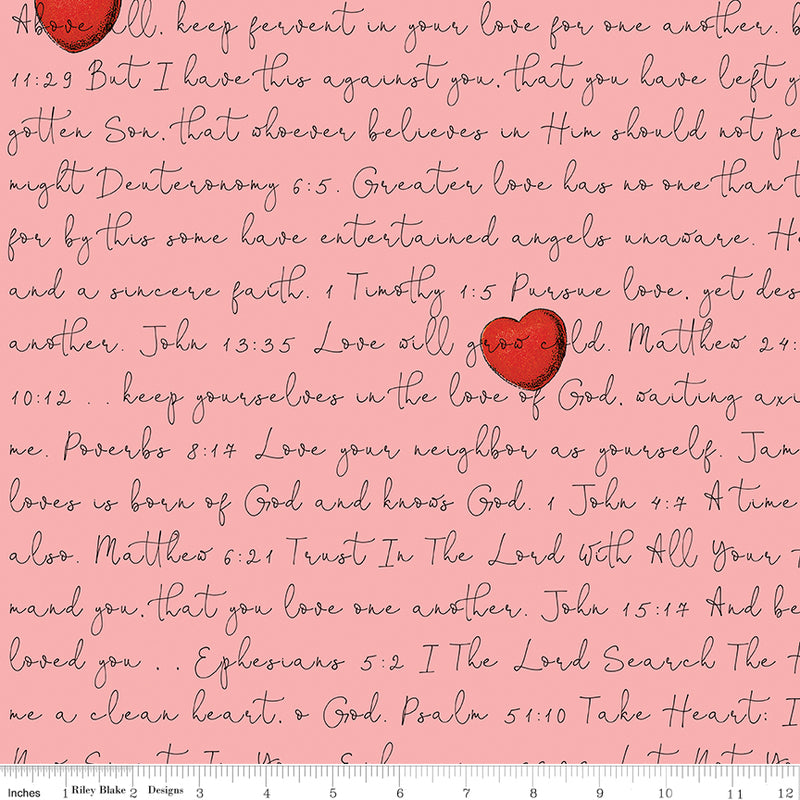 Above all, keep fervent in your love for one another. b
11:29 But I have this against you, that you have left y
gotten Son, that whoever believes in Him should not pe
might Deuteronomy 6:5. Greater love has no one than t
for by this some have entertained angels unaware. H
and a sincere faith. 1 Timothy 1:5 Pursue love, yet des
another. John 13:35 Love will grow cold. Matthew 24:
10:12 . . keep yourselves in the love of God, waiting axi
me. Poverbs 8:17 Love your neighbor as yourself. Jam
loves is born of God and knows God. 1 John 4:7 A time
also. Matthew 6:21 Trust In The Lord With All Your
mand you, that you love one another. John 15:17 And be
loved you . . Ephesians 5:2 I The Lord Search The H
me a clean heart, o God. Psalm 51:10 Take Heart: I
Inches 1 Riley Blake 2 Designs 3 4 5 6 7 8 9 10 11 12